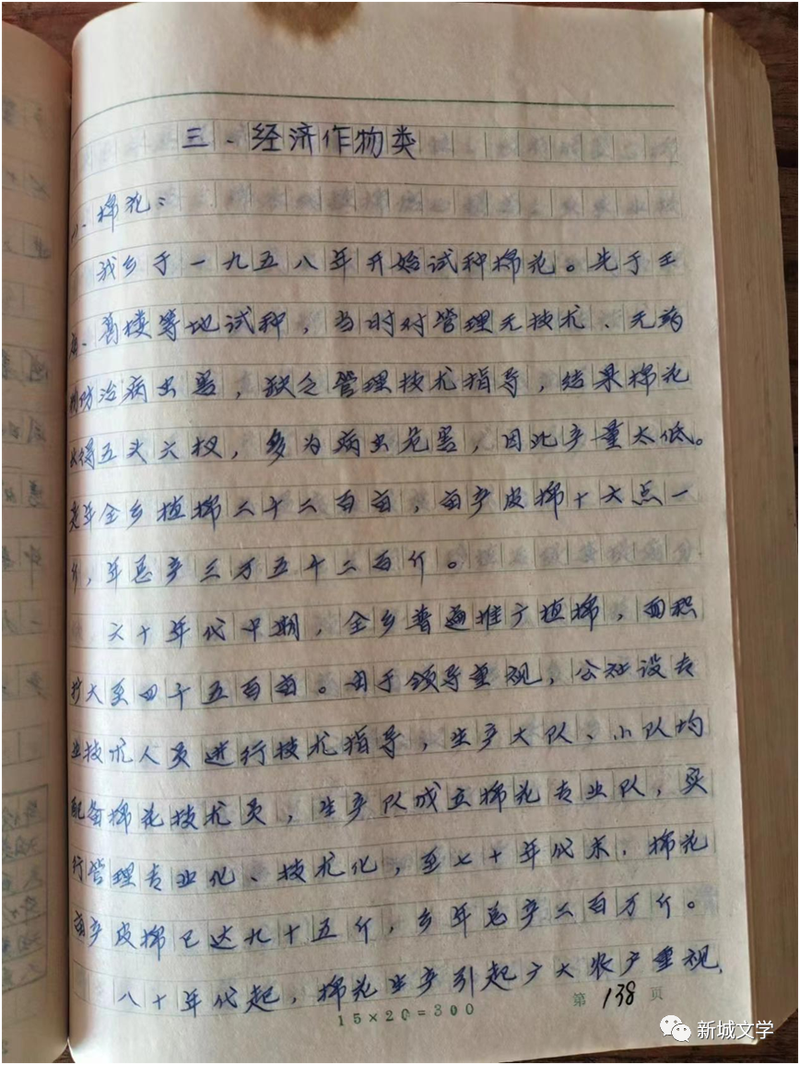 三、经济作物类
1、棉花：
我乡于一九五八年开始试种棉花。先于王
、葛楼等地试种，当时对管理无技术、无药
物防治病虫害，缺乏管理技术指导，结果棉花
得五头六杈，多为病虫危害，因此产量太低。
年全乡植棉二千二百亩，亩产皮棉十六点一
斤，年总产三万五千二百斤。
六十年代中期，全乡普遍推广植棉，面积
扩大至四千五百亩。由于领导重视，公社设专
业技术人员进行技术指导，生产大队、小队均
配备棉花技术员，生产队成立棉花专业队，实
行管理专业化、技术化，至七十年代末，棉花
亩产皮棉已达九十五斤，乡年总产二百万斤。
八十年代起，棉花生产引起广大农户重视，
15×20=300
第138页
新城文学